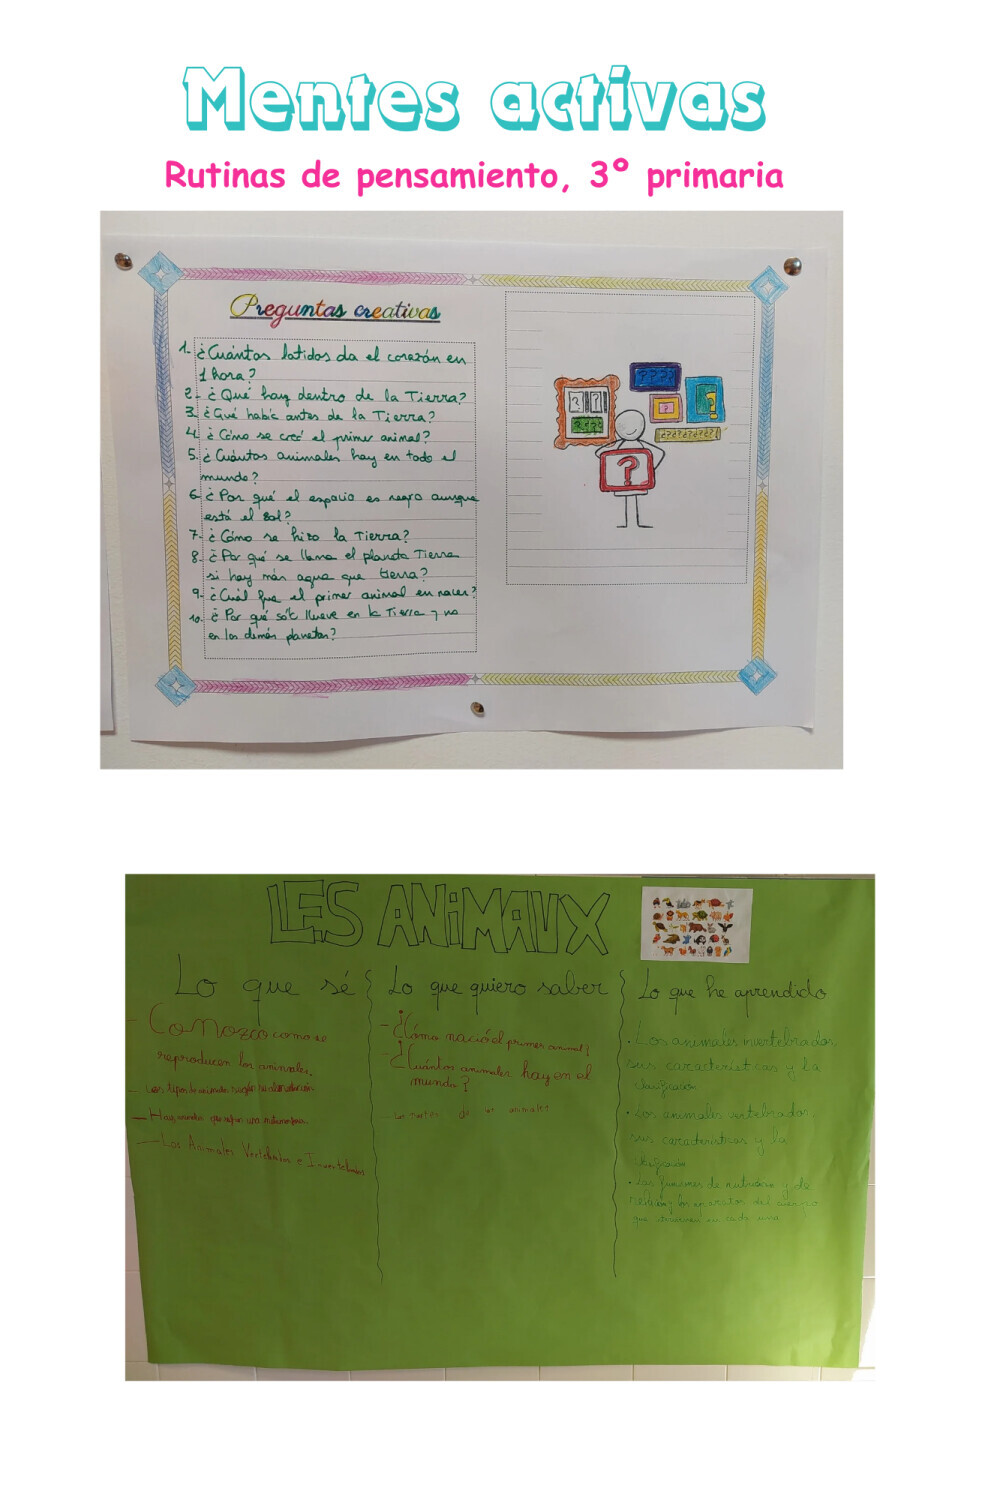 Mentes activas
Rutinas de pensamiento, 3º primaria
Preguntas creativas
1- ¿Cuántos latidos da el corazón en
1 hora?
2- ¿Qué hay dentro de la Tierra?
3. ¿Qué había antes de la Tierra?
4. ¿Cómo se creó el primer animal?
5. ¿Cuántos animales hay en todo el
mundo?
6. ¿Por qué el espacio es negro aunque
está el sol?
7- ¿Cómo se hizo la Tierra?
8. ¿Por qué se llama el planeta Tierra
si hay más agua que tierra?
9- ¿Cuál fue el primer animal en nacer?
10. ¿Por qué sólo llueve en la Tierra y no
en los demás planetas?
LES ANIMAUX
Lo que sé
- Conozco como se
reproducen los animales.
- Los tipos de animales según su alimentación
- Hay animales que
- Los Animales Vertebrados e Invertebrados
Lo que quiero saber
- ¿Cómo nació el primer animal?
- ¿Cuántos animales hay en el
mundo?
- Las partes de los animales
Lo que he aprendido
· Los animales invertebrados,
sus características y la
clasificación
· Los animales vertebrados,
sus características y la
clasificación
· Las funciones de nutrición y de
relación y los aparatos del cuerpo
que intervienen en cada una